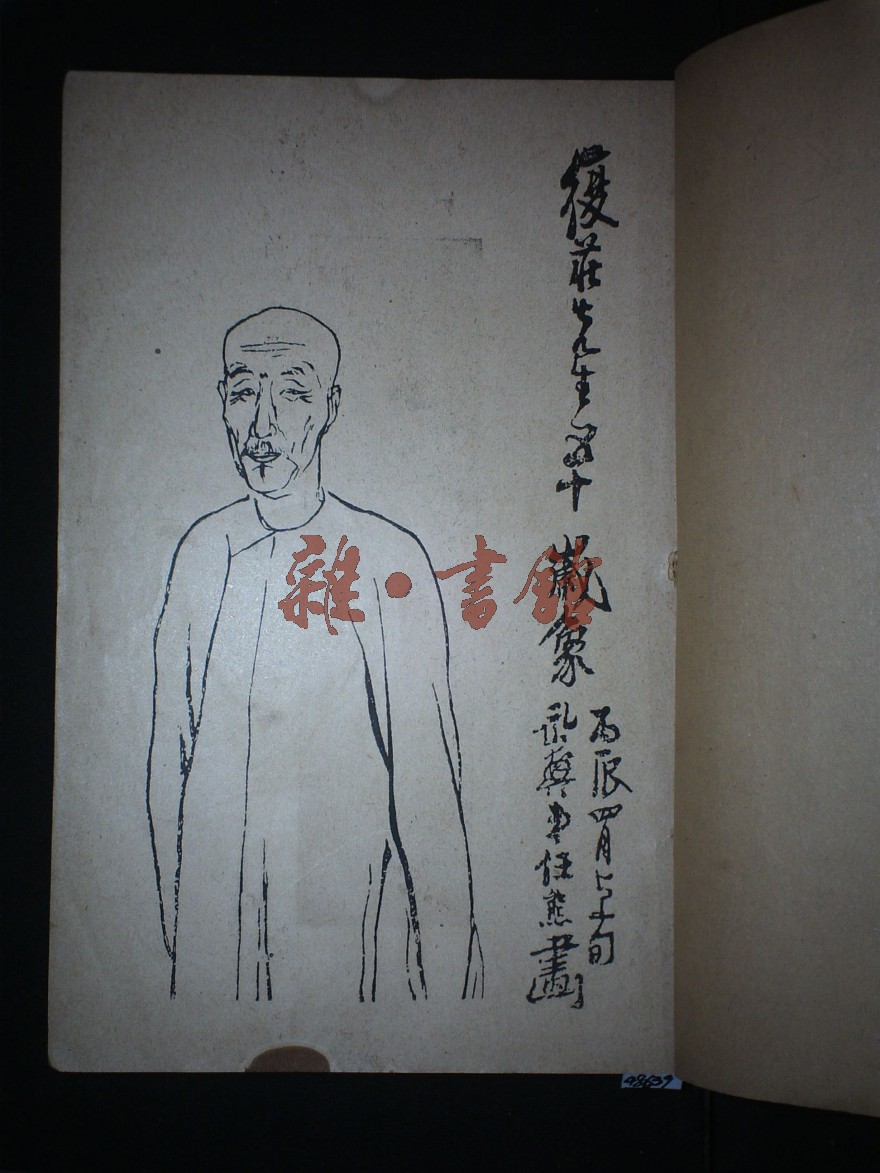 復莊先生五十歲象
丙辰四月上旬
永興弟任熊畫
雜·書館
48639